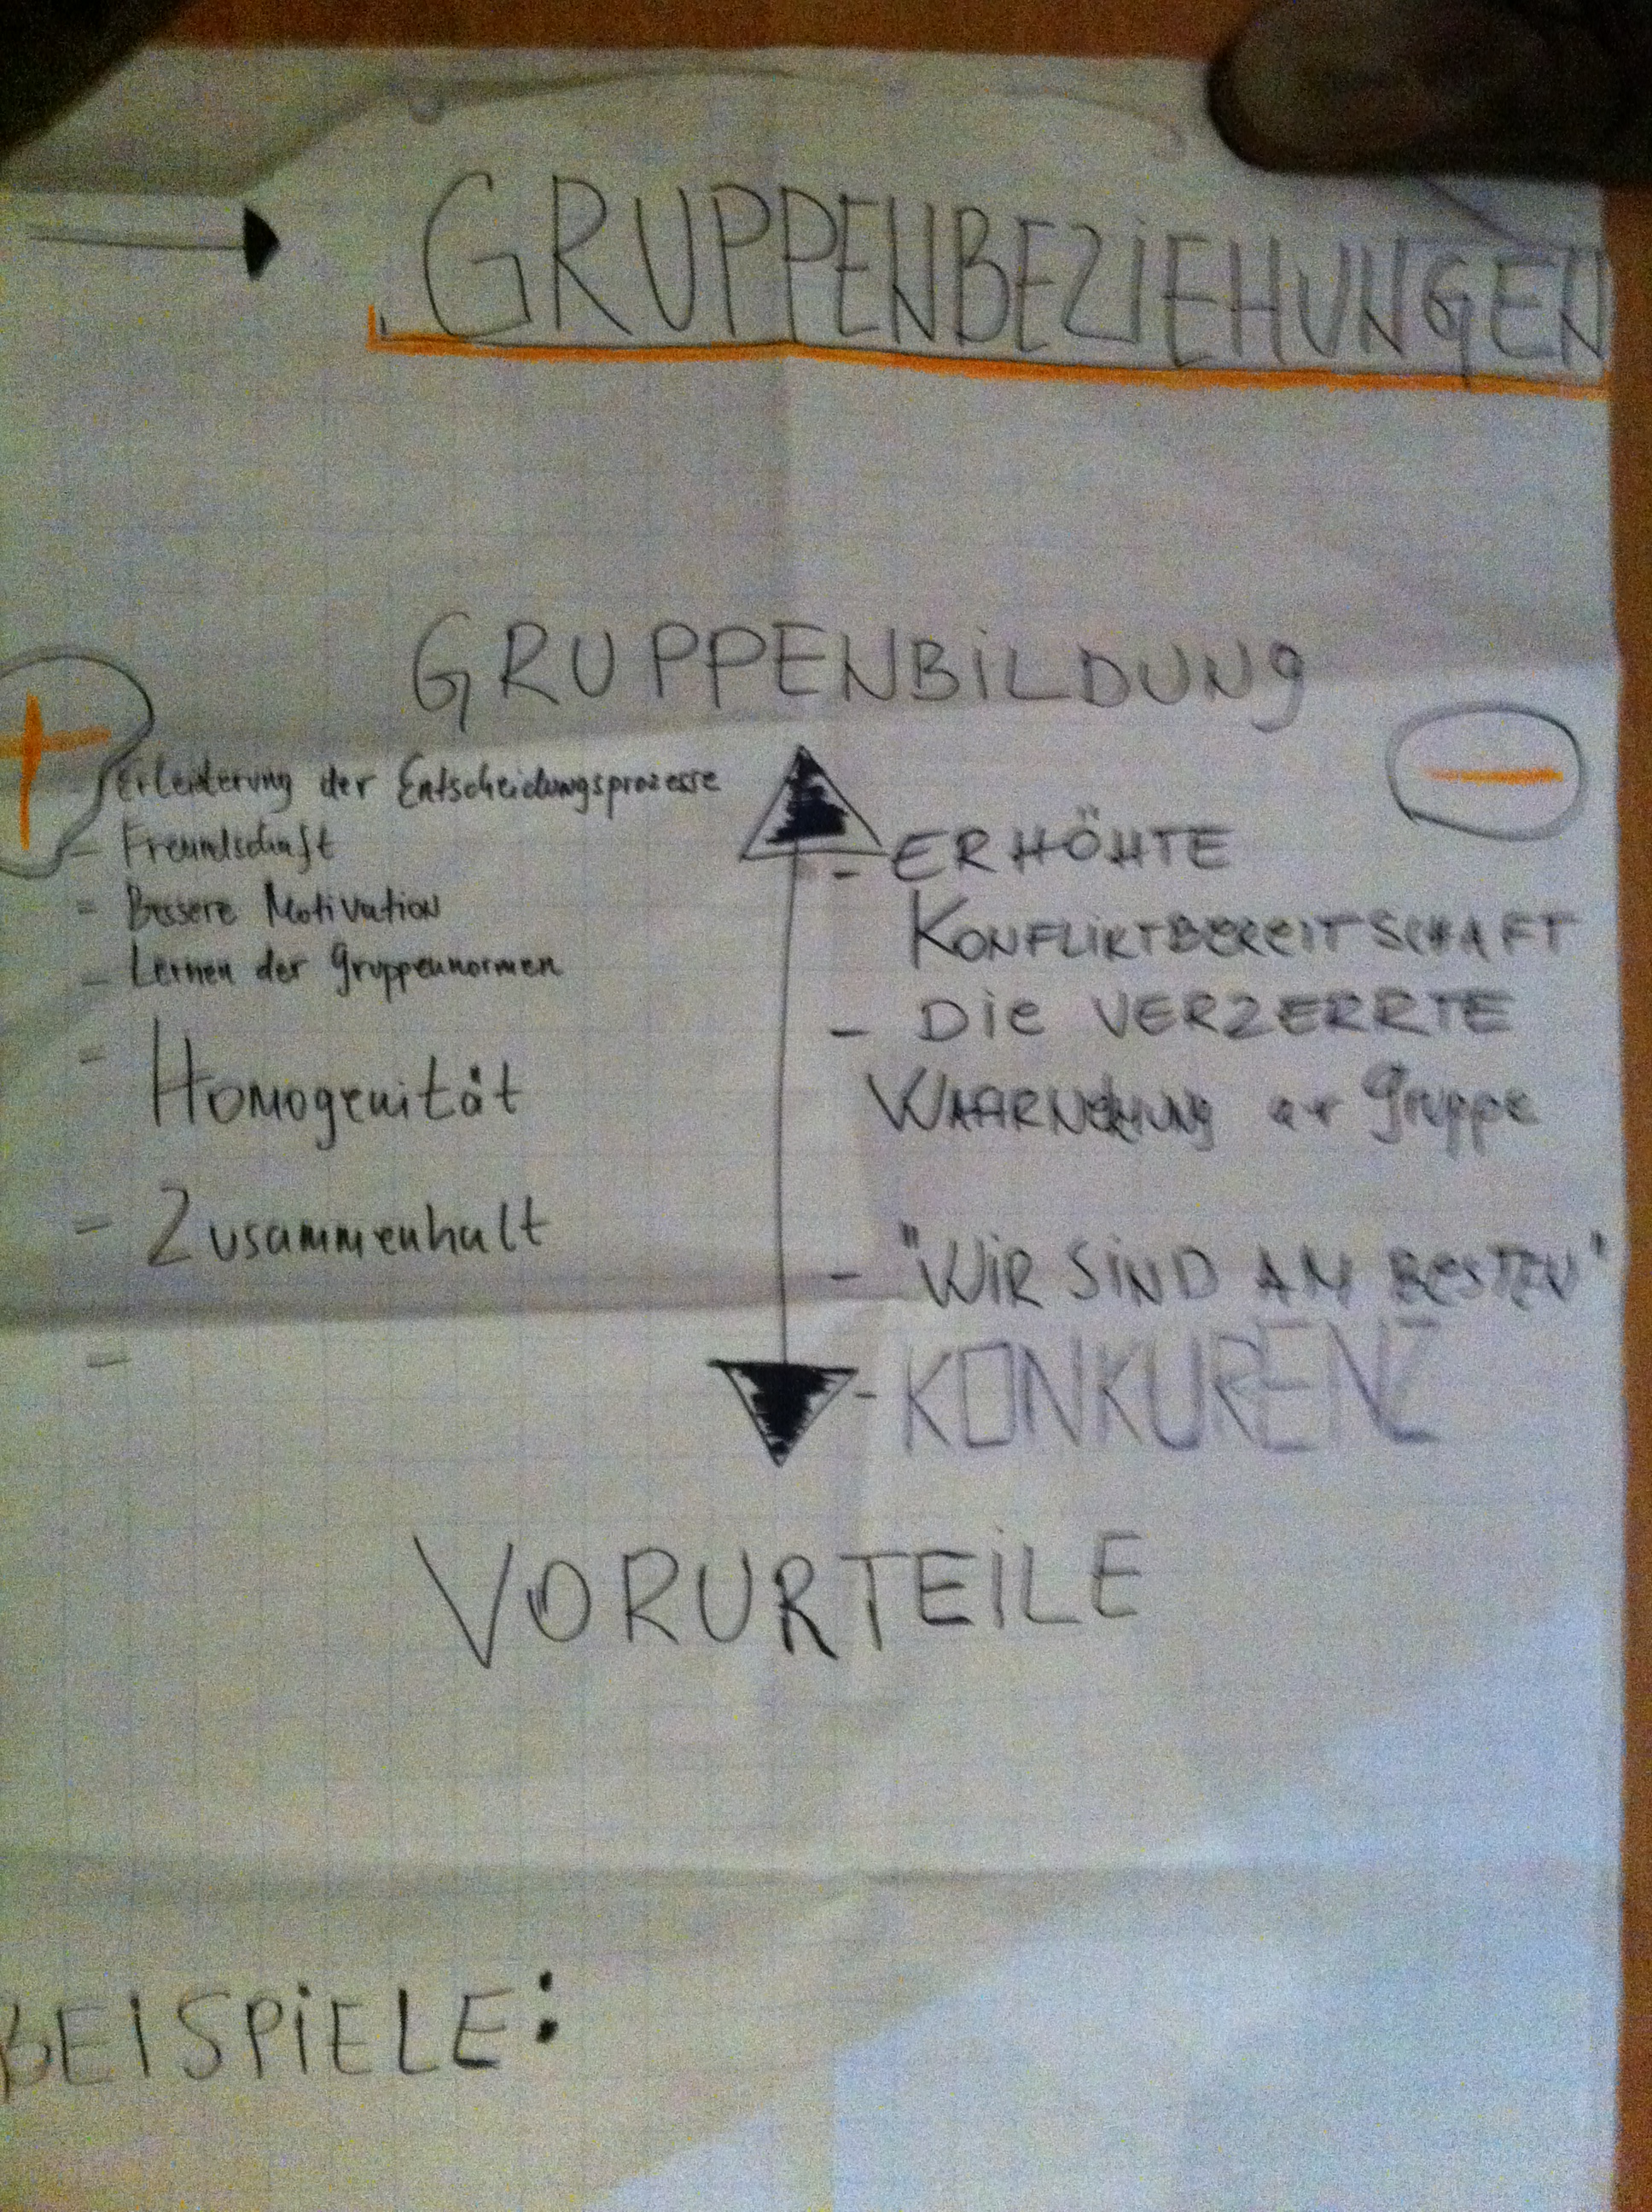 GRUPPENBEZIEHUNGEN
GRUPPENBILDUNG
+
Erleiterung der Entscheidungsprozesse
- Freundschaft
- Bessere Motivation
- Lernen der Gruppennormen
- Homogenität
- Zusammenhalt
-
—
- ERHÖHTE
KONFLIKTBEREITSCHAFT
- Die VERZERRTE
WAHRNEHMUNG Gruppe
- "WIR SIND AM BESTEN"
- KONKURENZ
VORURTEILE
BEISPIELE: